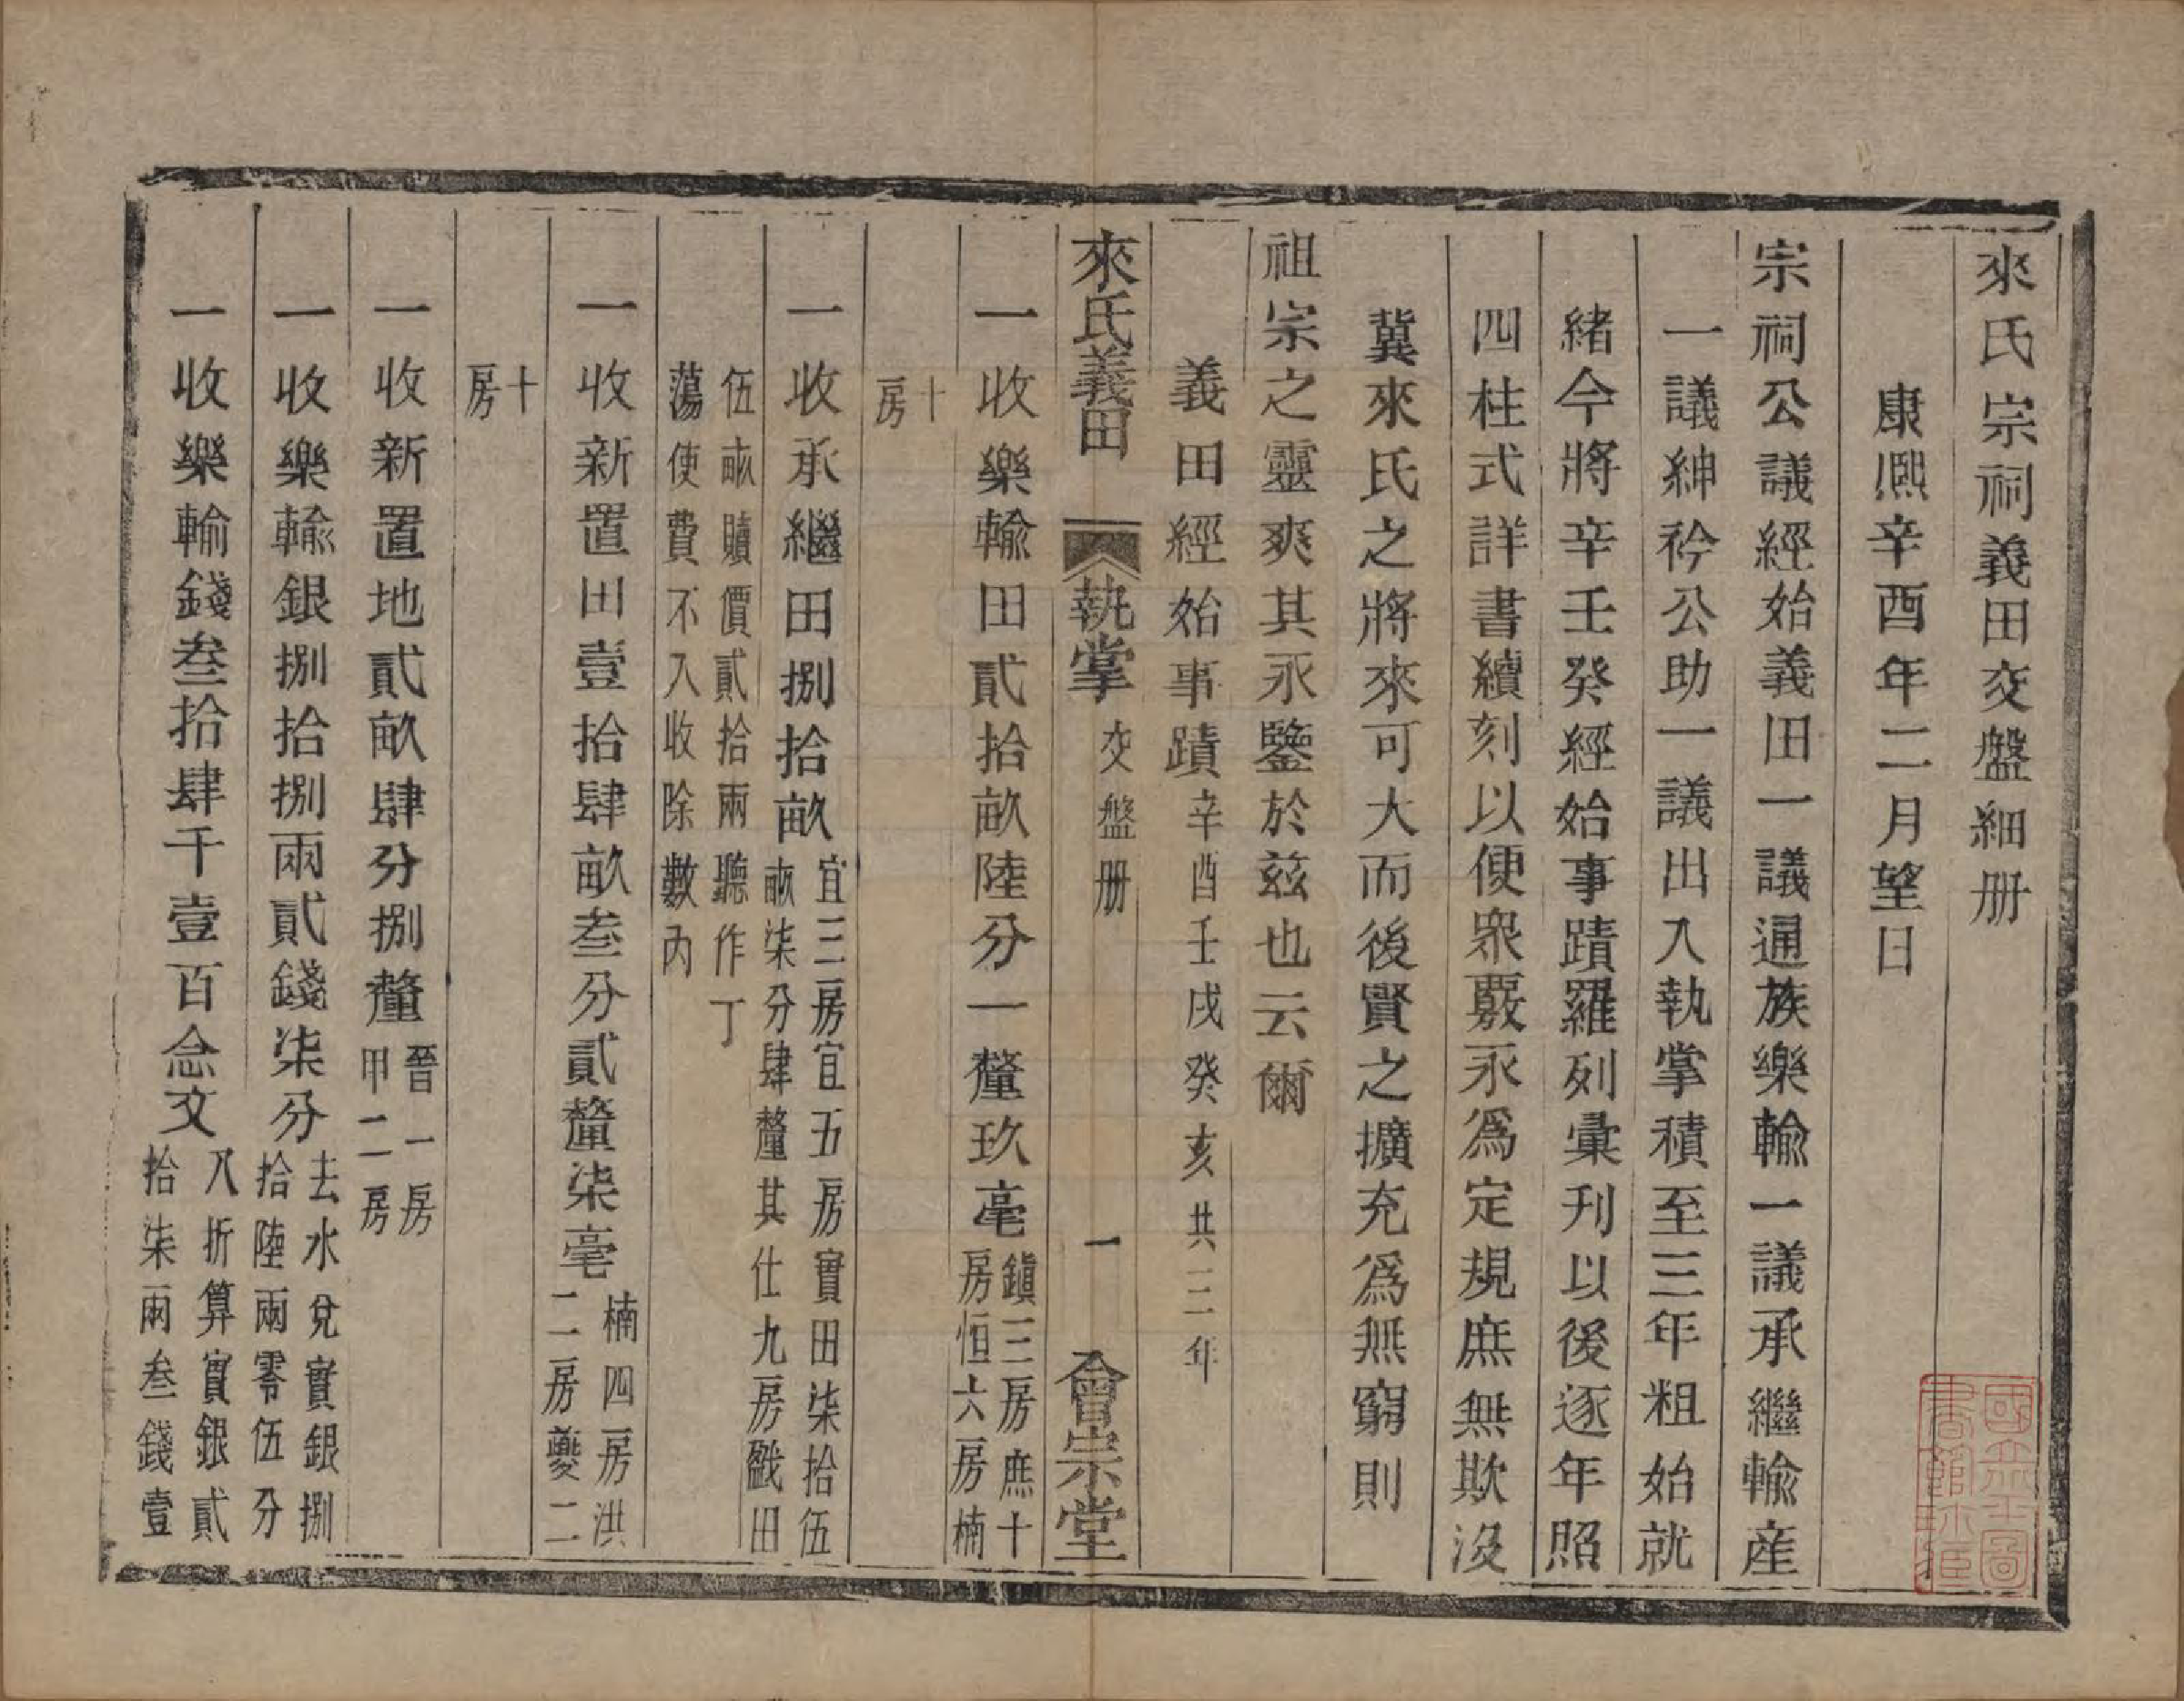 來氏宗祠義田交盤細册
康熙辛酉年二月望日
宗祠公議經始義田一議通族樂輸一議承繼輸産
一議紳衿公助一議出入執掌積至三年粗始就
緒今將辛壬癸經始事蹟羅列彙刊以後逐年照
四柱式詳書續刻以便衆覈永爲定規庶無欺没
冀來氏之將來可大而後賢之擴充爲無窮則
祖宗之靈爽其永鑒於兹也云爾
義田經始事蹟辛酉壬戌癸亥共三年
來氏義田 執掌 交盤册 一 會宗堂
一收樂輸田貳拾畝陸分一釐玖毫鎮三房庶十
房恒六房楠
十
房
一收承繼田捌拾畝宜三房宜五房實田柒拾伍
畝柒分肆釐其仕九房戤田
伍畝贖價貳拾兩聽作丁
蕩使費不入收除數内
一收新置田壹拾肆畝叁分貳釐柒毫楠四房洪
二二房夔二
十
房
一收新置地貳畝肆分捌釐晉一房
甲二房
一收樂輸銀捌拾捌兩貳錢柒分去水兌實銀捌
拾陸兩零伍分
一收樂輸錢叁拾肆千壹百念文八折算實銀貳
拾柒兩叁錢壹
國立北平圖書館珍藏